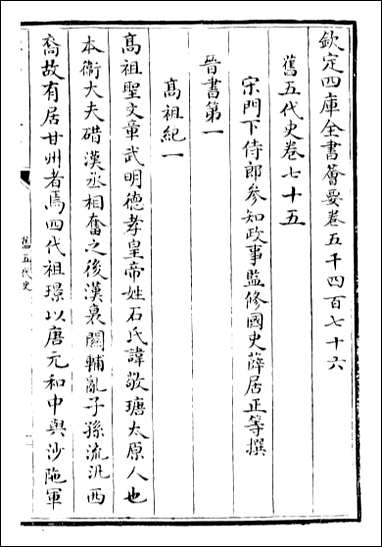 欽定四庫全書薈要卷五千四百七十六
舊五代史卷七十五
宋門下侍郎參知政事監修國史薛居正等撰
晉書第一
高祖紀一
高祖聖文章武明德孝皇帝姓石氏諱敬瑭太原人也
本衛大夫碏漢丞相奮之後漢衰關輔亂子孫流汎西
裔故有居甘州者焉四代祖璟以唐元和中與沙陁軍
舊五代史